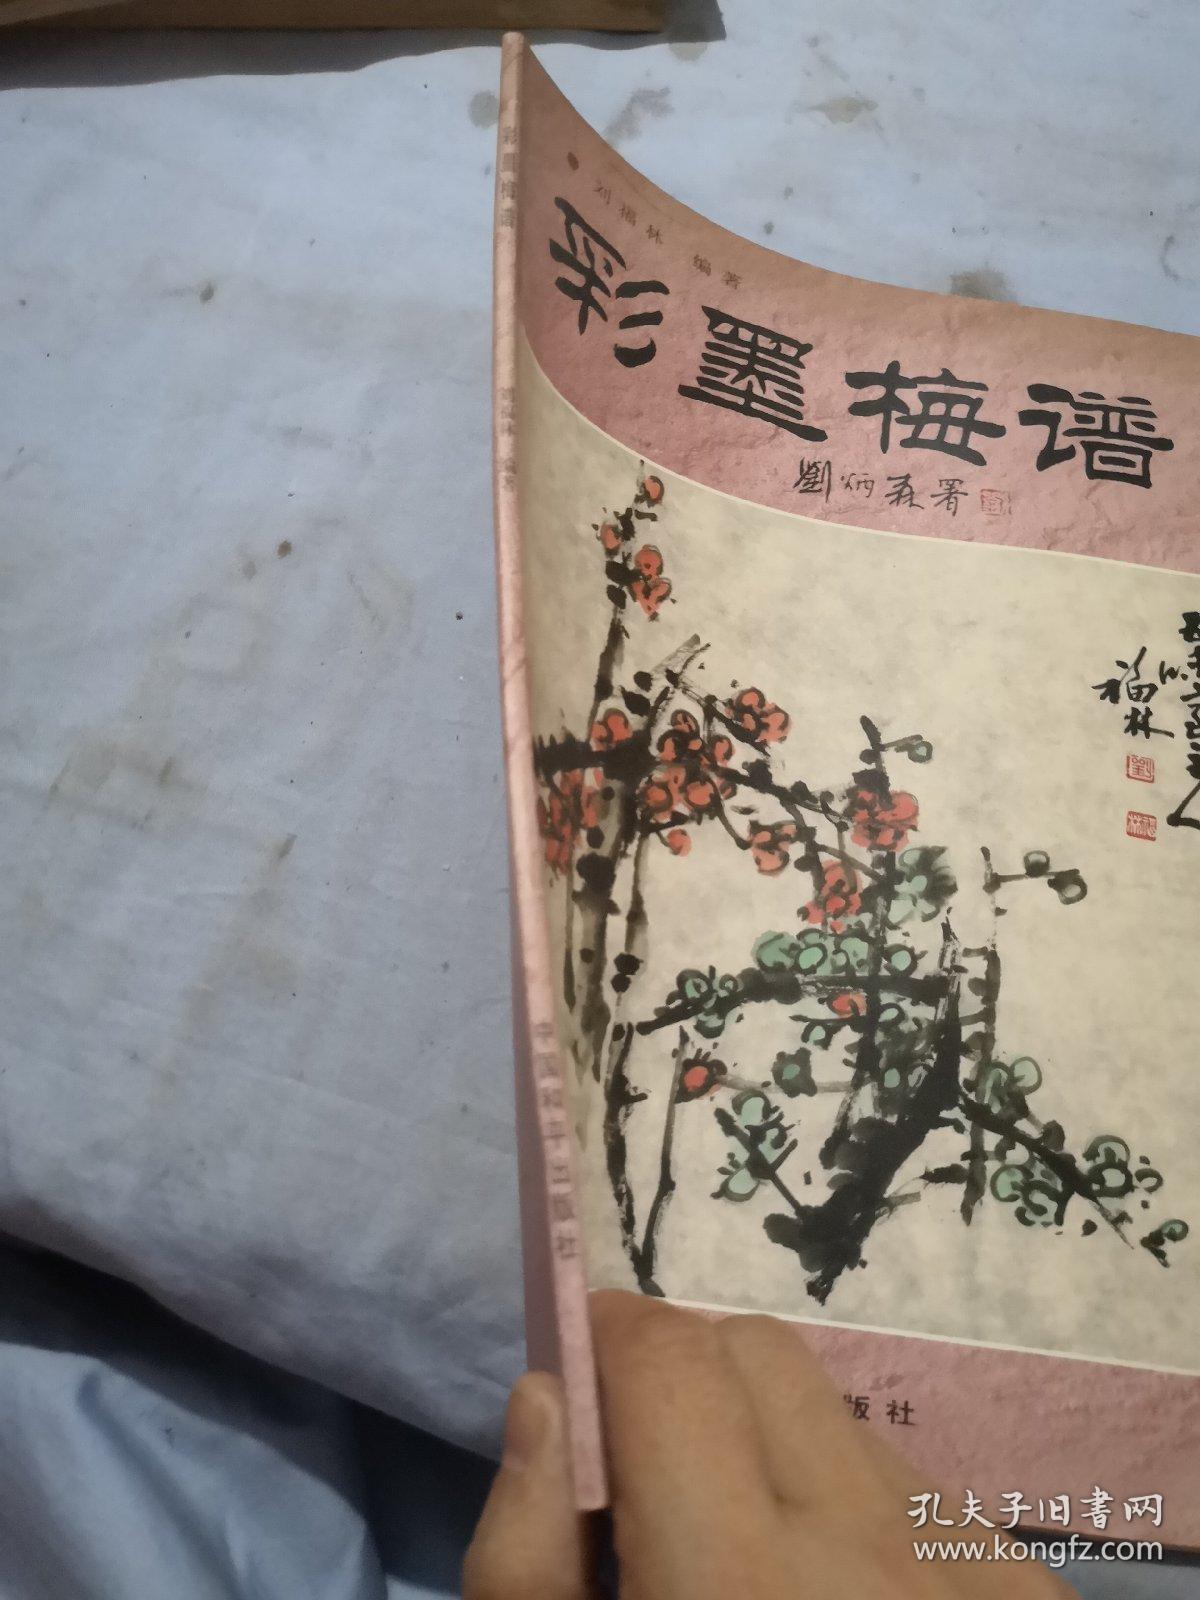 彩墨梅谱
刘福林 编著
中国和平出版社
刘福林 编著
彩墨梅谱
劉炳森署
福林
版社
孔夫子旧书网
www.kongfz.com